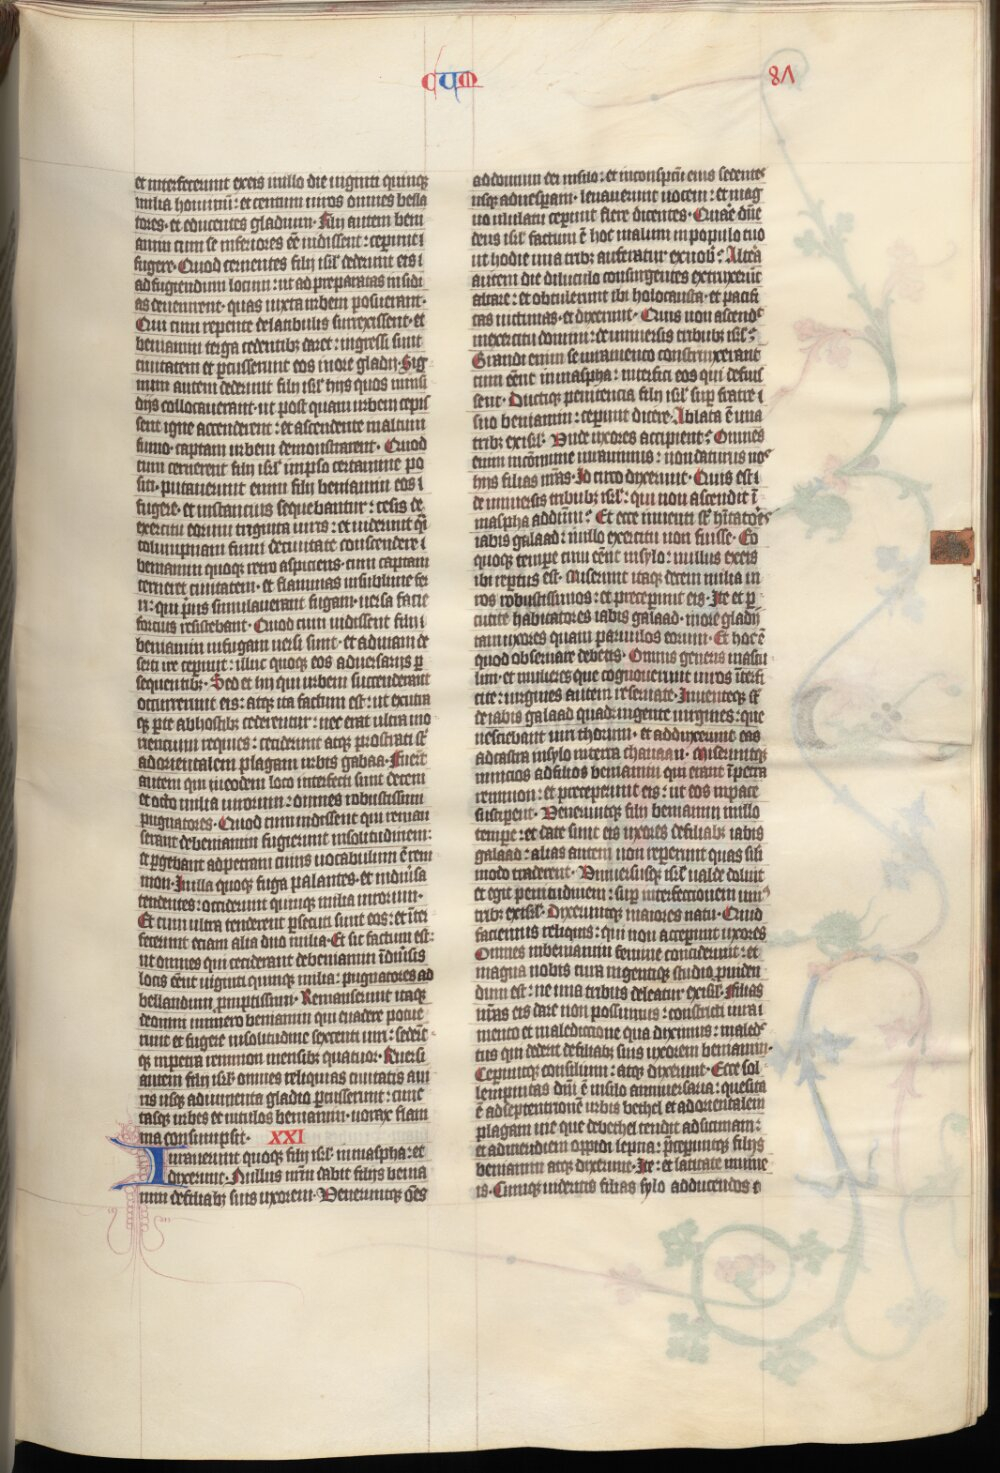 CUM
81
et interfecerunt exeis in illo die viginti quinqꝫ
milia hominū: et centum viros omnes bella
tores· et educentes gladium· Filii autem beni
amin cum se inferiores eē vidissent: ceperunt
fugere· Quod cernentes filii isrl̄ dederunt eis
ad fugiendum locum: ut ad preparatas insidi
as devenirent· quas iuxta urbem posuerant·
Qui cum repente de latibulis surrexissent· et
beniamin terga cedentibꝫ daret: ingressi sunt
civitatem et ꝑcusserunt eos in ore gladii· Sig
num autem dederunt filii isrl̄ hiis quos in insi
diis collocaverant· ut post quam urbem cepis
sent igne accenderent: et ascendente in altum
fumo· captam urbem demonstrarent· Quod
cum cernerent filii isrl̄ in ipso certamine po
siti· putaverunt enim filii beniamin eos
fugere· et instancius sequebantur: cesis de
exercitu eorum triginta viris: et viderunt q̄i
columpnam fumi de civitate conscendere
beniamin quoqꝫ retro aspiciens· cum captam
cerneret civitatem· et flammas in sublime fe
ri: qui prius simulaverant fugam· versa facie
forcius resistebant· Quod cum vidissent filii
beniamin in fugam versi sunt· et ad viam de
serti ire ceperunt: illuc quoqꝫ eos adversariis ꝑ
sequentibꝫ· Sed et hii qui urbem succenderant
occurrerunt eis: atqꝫ ita factum est: ut ex utra
qꝫ parte ab hostibꝫ cederentur: nec erat ulla mo
riencium requies: ceciderunt atqꝫ prostrati sūt
ad orientalem plagam urbis gabaa· Fuerūt
autem qui in eodem loco interfecti sunt decem
et octo milia virorum: omnes robustissimi
pugnatores· Quod cum vidissent qui reman
serant de beniamin fugierunt in solitudinem:
et ꝑgebant ad petram cuius vocabulum ē rem
mon· In illa quoqꝫ fuga palantes· et in diversa
tendentes: occiderunt quinqꝫ milia virorum·
Et cum ultra tenderent ꝑsecuti sunt eos: et īter
fecerunt eciam alia duo milia· Et sic factum est:
ut omnes qui ceciderant de beniamin ī diversis
locis eēnt viginti quinqꝫ milia: pugnatores ad
bellandum ꝓmptissimi· Remanserunt itaqꝫ
de omni numero beniamin qui evadere potue
runt et fugere in solitudine sexcenti viri: sederūt
qꝫ in petra remmon mensibꝫ quatuor· Reversi
autem filii isrl̄ omnes reliquias civitatis a vi
ris usqꝫ ad iumenta gladio ꝑcusserunt: cunc
tasqꝫ urbes et viculos beniamin· vorax flam
ma consumpsit· XXI
Iuraverunt quoqꝫ filii isrl̄ in maspha: et
dixerunt· Nullus nrūm dabit filiis benia
min de filiabꝫ suis uxorem· Veneruntqꝫ ōes
ad domum dei in silo: et in conspectu eius sedentes
usqꝫ ad vesperam· levaverunt vocem: et mag
no ululatu ceperunt flere dicentes· Quare dn̄e
deus isrl̄ factum ē hoc malum in populo tuo
ut hodie una tribꝫ auferatur ex nobis? Altera
autem die diluculo consurgentes extruxerūt
altare: et obtulerunt ibi holocausta· et pacifi
cas victimas· et dixerunt· Quis non ascendit
in exercitu domini: de universis tribubꝫ isrl̄?
Grandi enim se iuramento constrinxerant
cum eēnt in maspha: interfici eos qui defuis
sent· Ductiqꝫ penitencia filii isrl̄ suꝑ fratre
suo beniamin: ceperunt dicere· Ablata ē una
tribꝫ ex isrl̄· Unde uxores accipient? Omnes
enim in cōmune iuravimus: non daturus nos
hiis filias nr̄as· Idcirco dixerunt· Quis est
de universis tribubꝫ isrl̄: qui non ascendit ī
maspha ad dūm? Et ecce inventi sūt hītatores
iabis galaad: in illo exercitu non fuisse· Eo
quoqꝫ tempore cum eēnt in sylo: nullus ex eis
ibi reꝑtus est· Miserunt itaqꝫ decem milia vi
ros robustissimos: et preceperunt eis· Ite et ꝑ
cutite habitatores iabis galaad· in ore gladii
tam uxores quam parvulos eorum· Et hoc ē
quod observare debetis· Omnis generis mascu
lini· et mulieres que cognoverunt viros īterfi
cite: virgines autem reservate· Inventeqꝫ sūt
de iabis galaad quadringente virgines: que
nesciebant viri thorum· et adduxerunt eas
ad castra in sylo in terra chanaan· Miseruntqꝫ
nuncios ad filios beniamin qui erant ī petra
remmon: et preceperunt eis: ut eos in pace
susciperent· Veneruntqꝫ filii beniamin in illo
tempore: et date sunt eis uxores de filiabꝫ iabis
galaad: alias autem non repererunt quas sili
modo traderent· Universusqꝫ isrl̄ valde doluit
et egit penitudinem: suꝑ interfectionem unius
tribꝫ ex isrl̄· Dixeruntqꝫ maiores natu· Quid
faciemus reliquis: qui non acceperunt uxores
Omnes in beniamin femine conciderunt: et
magna nobis cura ingentiqꝫ studio ꝓviden
dum est: ne una tribus deleatur ex isrl̄· Filias
nr̄as eis dare non possumus: constricti iura
mento et malediccione qua diximus: maledic
tus qui dederit de filiabꝫ suis uxorem beniamin·
Ceperuntqꝫ consilium: atqꝫ dixerunt· Ecce sol
lempnitas dn̄i ē in silo anniversaria: que sita
ē ad septentrionē urbis bethel et ad orientalem
plagam vie que de bethel tendit ad sicimam:
et ad meridiem oppidi lepna: p̄ceperuntqꝫ filiis
beniamin atqꝫ dixerunt· Ite: et latitate in vine
is· Cumqꝫ videritis filias sylo ad ducendos